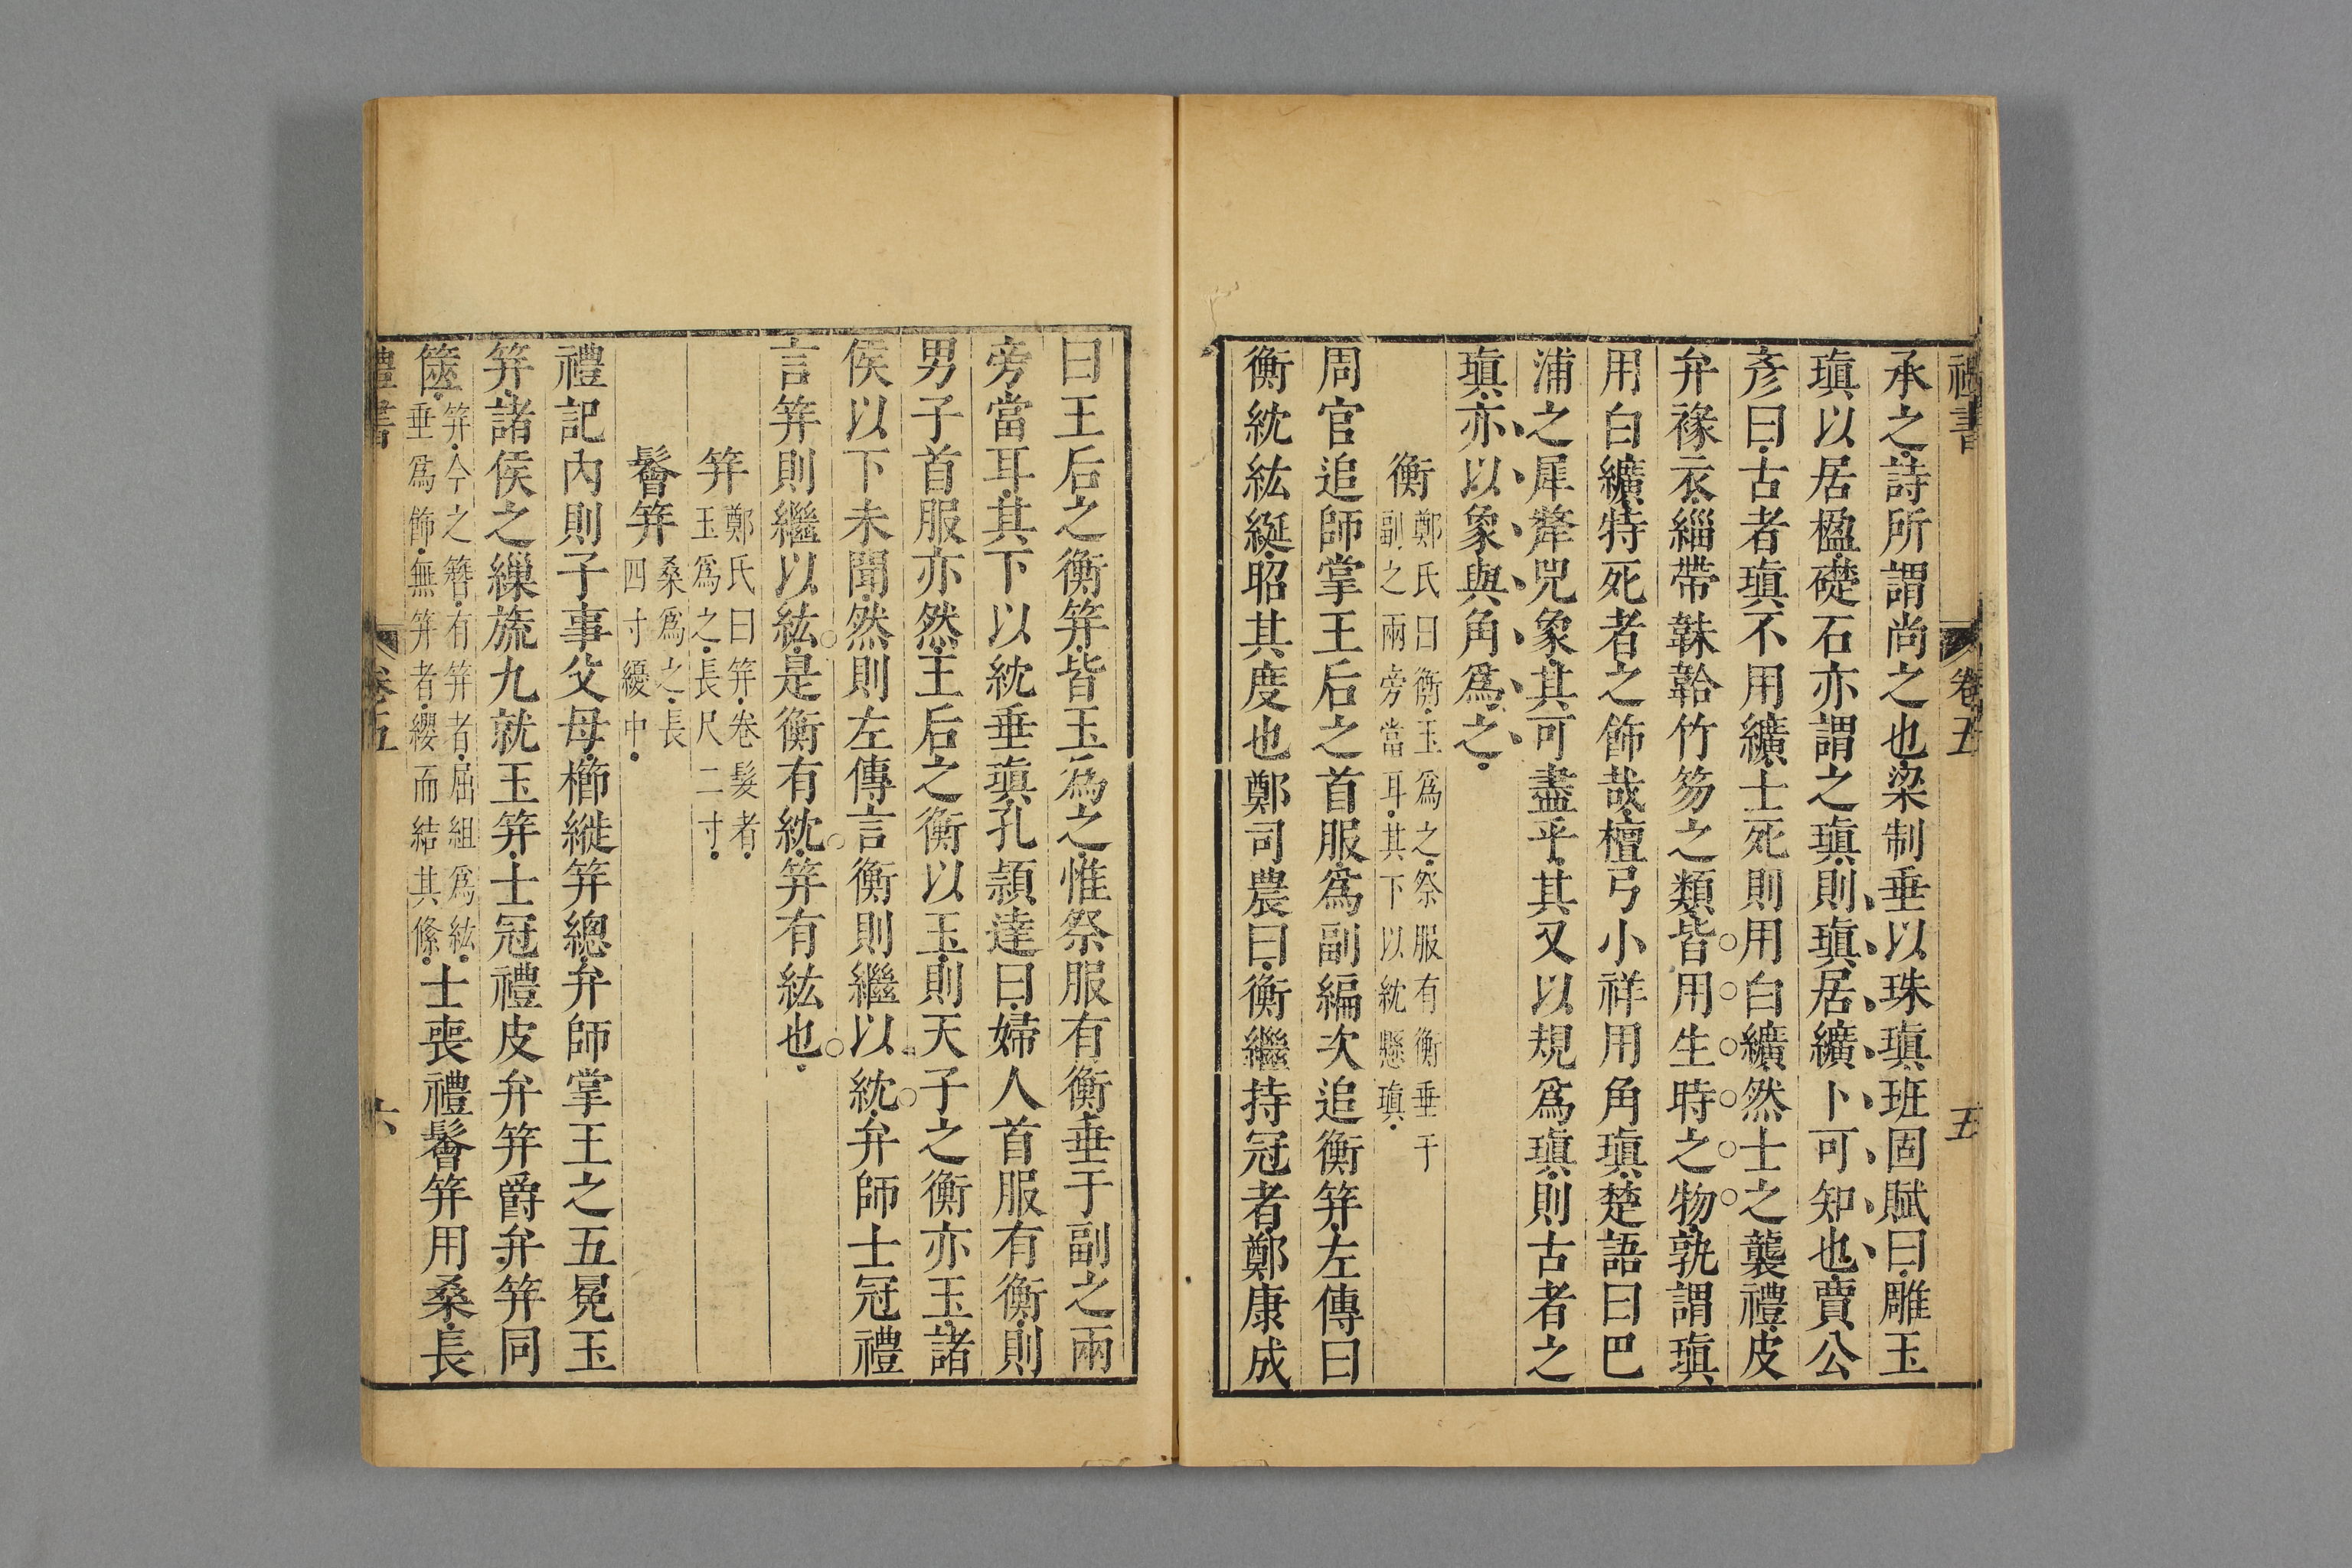 禮書 卷五 五
承之詩所謂尚之也梁制垂以珠瑱班固賦曰雕玉
瑱以居楹礎石亦謂之瑱則瑱居纊卜可知也賈公
彦曰古者瑱不用纊士死則用白纊然士之襲禮皮
弁褖衣緇帶韎韐竹笏之類皆用生時之物孰謂瑱
用白纊特死者之飾哉檀弓小祥用角瑱楚語曰巴
浦之犀犛兕象其可盡乎其又以規爲瑱則古者之
瑱亦以象與角爲之
衡 鄭氏曰衡玉爲之祭服有衡垂于
副之兩旁當耳其下以紞懸瑱
周官追師掌王后之首服爲副編次追衡笄左傳曰
衡紞紘綖昭其度也鄭司農曰衡繼持冠者鄭康成
曰王后之衡笄皆玉爲之惟祭服有衡垂于副之兩
旁當耳其下以紞垂瑱孔頴達曰婦人首服有衡則
男子首服亦然王后之衡以玉則天子之衡亦玉諸
侯以下未聞然則左傳言衡則繼以紞弁師士冠禮
言笄則繼以紘是衡有紞笄有紘也
笄 鄭氏曰笄卷髮者
玉爲之長尺二寸
鬠笄 桑爲之長
四寸纋中
禮記內則子事父母櫛縰笄總弁師掌王之五冕玉
笄諸侯之繅斿九就玉笄士冠禮皮弁笄爵弁笄同
篋 笄今之簪有笄者屈組爲紘
垂爲飾無笄者纓而結其絛
士喪禮鬠笄用桑長
禮書 卷五 六